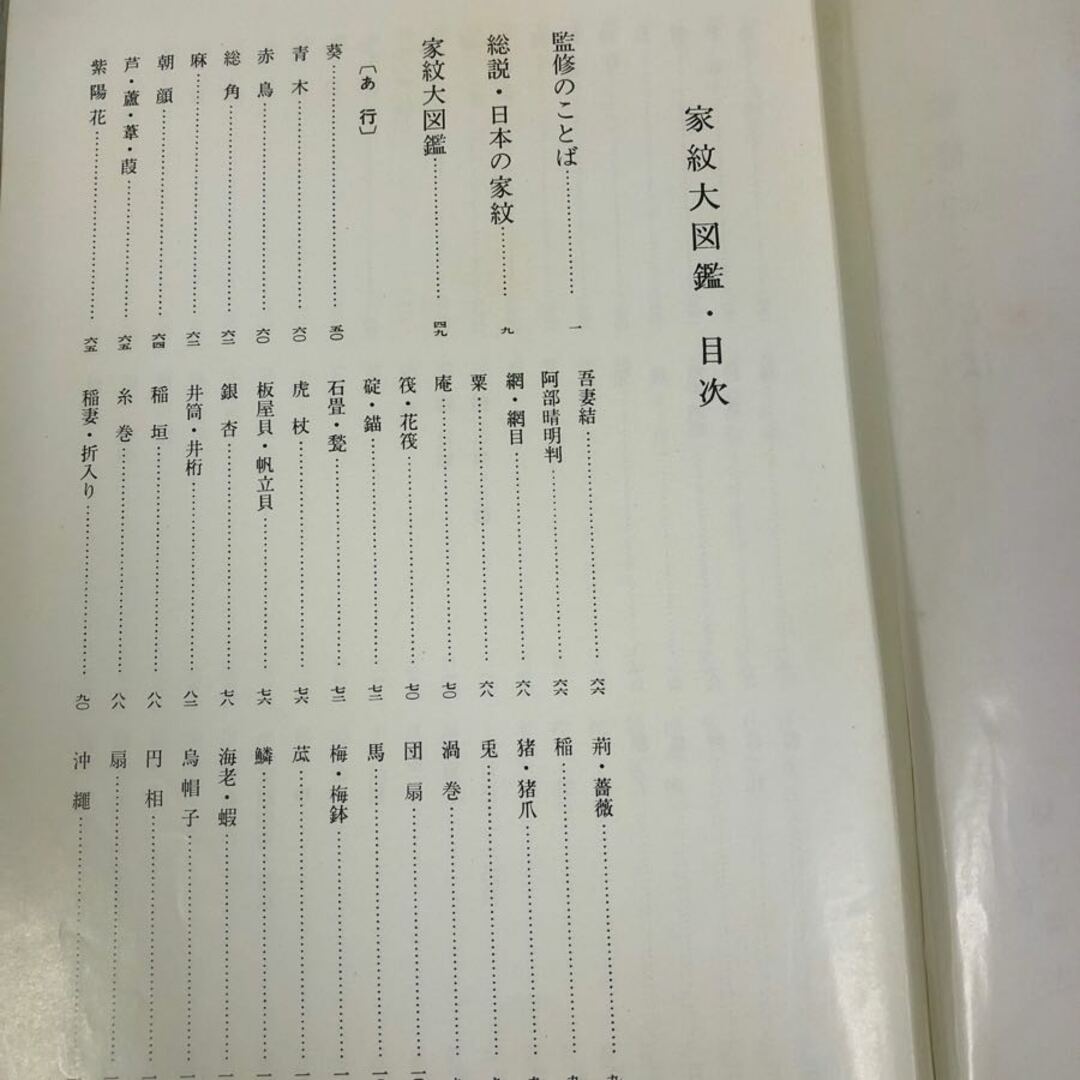 家紋大図鑑・目次
監修のことば……一
総説・日本の家紋……九
家紋大図鑑……四九
〔あ行〕
葵……五〇
青木……六〇
赤鳥……六〇
総角……六二
麻……六二
朝顔……六四
芦・蘆・葦・葭……六五
紫陽花……六五
吾妻結……六六
阿部晴明判……六六
網・網目……六八
粟……六八
庵……七〇
筏・花筏……七〇
碇・錨……七二
石畳・甃……七三
虎杖……七六
板屋貝・帆立貝……七六
銀杏……七八
井筒・井桁……八二
稲垣……八八
糸巻……八八
稲妻・折入り……九〇
荊・薔薇……
稲……
猪・猪爪……
兎……
渦巻……
団扇……
馬……
梅・梅鉢……
苽……
鱗……
海老・蝦……
烏帽子……
円相……
扇……
沖縄……